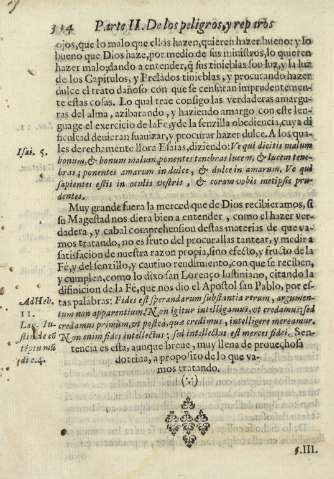 334 Parte II. De los peligros, y reparos
ojos, que lo malo que ellos hazen, quieren hazer bueno: y lo
bueno que Dios haze, por medio de sus ministros, lo quieren
hazer malo, dando a entender, q̃ sus tinieblas son luz, y la luz
de los Capitulos, y Prelados tinieblas, y procurando hazer
dulce el trato dañoso con que se censuran imprudentemen-
te estas cosas. Lo qual trae consigo las verdaderas amargu-
ras del alma, azibarando, y haziendo amargo con este len-
guage el exercicio de la Fe, y de la senzilla obediencia, cuya di
ficultad deuieran suauizar, y procurar hazer dulce. A los qua-
les derechamente llora Esaias, diziendo: Ve qui dicitis malum
Isai. 5. bonum, & bonum malum, ponentes tenebras lucem, & lucem tene-
bras; ponentes amarum in dulce, & dulce in amarum. Ve qui
sapientes estis in oculis vestris, & coram vobis metipsis pru-
dentes.
Muy grande fuera la merced que de Dios recibieramos, si
su Magestad nos diera bien a entender, como el hazer ver-
dadera, y cabal comprehension destas materias de que va-
mos tratando, no es fruto del procurallas tantear, y medir a
satisfacion de nuestra razon propia, sino efecto, y fruto de la
Fé, y del senzillo, y cautiuo rendimiento, con que se reciben,
y cumplen, como lo dixo san Lorenço Iustiniano, citando la
difinicion de la Fé, que nos dio el Apostol san Pablo, por es-
Ad Heb. tas palabras: Fides est sperandarum substantia rerum, argumen-
11. tum non apparentium. Non igitur intelligamus, vt credamus; sed
Lau. Iu- credamus primum, vt posteà, quæ credimus, intelligere mereamur.
Non enim fidei intellectus; sed intellectus est merces fidei. Sen-
tencia es esta, aunque breue, muy llena de prouechosa
di c.4. dotrina, a proposito de lo que va-
mos tratando.
(∴)
§.III.